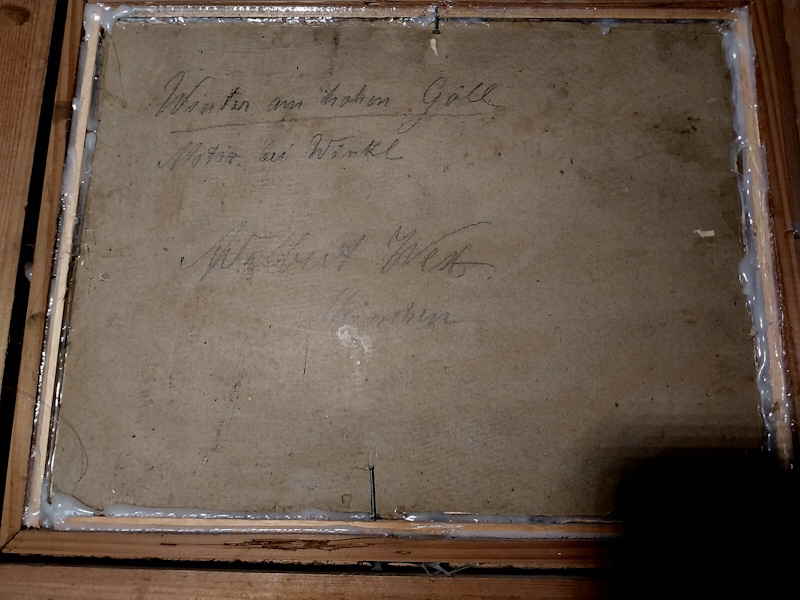 Winter am hohen Göll
Motiv bei Winkl
Adalbert Wex
München